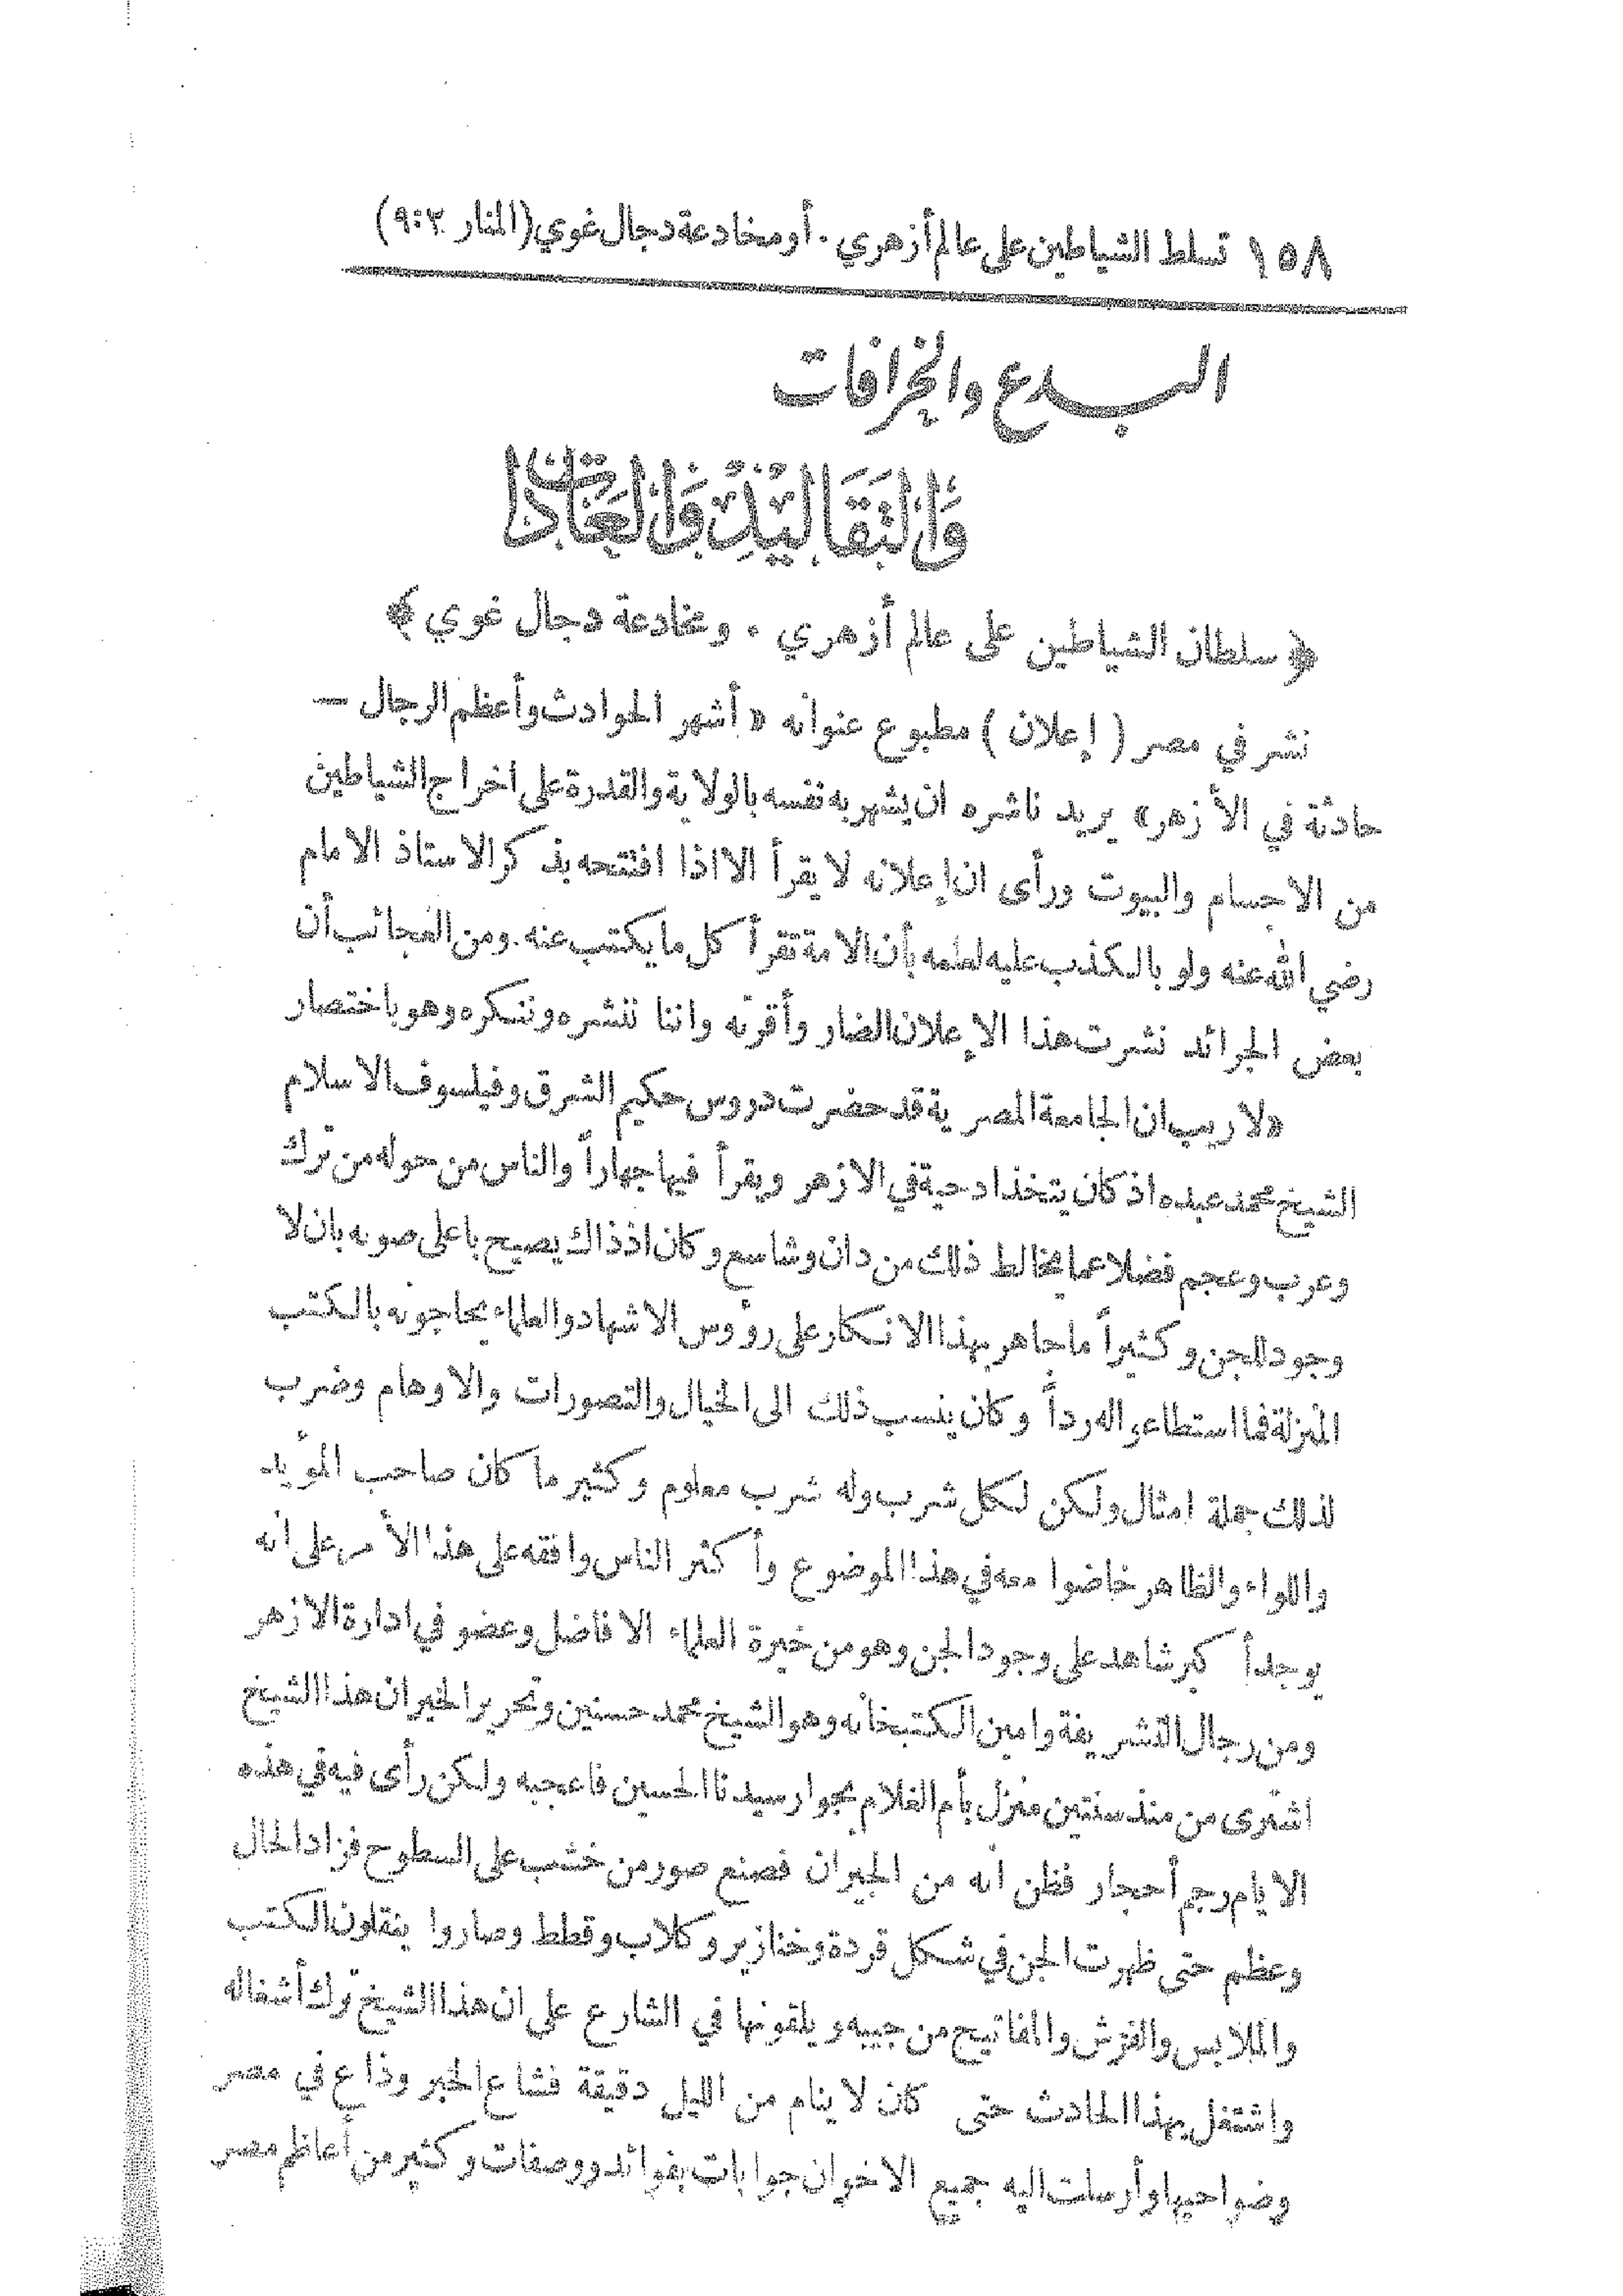 ١٥٨ تسلط الشياطين على عالم أزهري . أو مخادعة دجال غوي (المنار ٢ : ٩)
البدع والخرافات
وَالتَّقَالِيْدُ وَالْعَادَاتُ
﴿ سلطان الشياطين على عالم أزهري . ومخادعة دجال غوي ﴾
نشر في مصر ( إعلان ) مطبوع عنوانه « أشهر الحوادث وأعظم الرجال —
حادثة في الأزهر» يريد ناشره ان يشهر به نفسه بالولاية والقدرة على اخراج الشياطين
من الاجسام والبيوت ورأى ان إعلانه لا يقرأ الا اذا افتتحه بذكر الاستاذ الامام
رضي الله عنه ولو بالكذب عليه لعلمه بأن الامة تقرأ كل ما يكتب عنه . ومن العجائب أن
بعض الجرائد نشرت هذا الإعلان الضار وأقرته واننا ننشره وننكره وهو باختصار
«لا ريب ان الجامعة المصرية قد حضرت دروس حكيم الشرق وفيلسوف الاسلام
الشيخ محمد عبده اذ كان يتخذ ادحية في الازهر ويقرأ فيها جهاراً والناس من حوله من ترك
وعرب وعجم فضلا عما يخالط ذلك من دان وشاسع وكان اذ ذاك يصيح باعلى صوته بان لا
وجود للجن وكثيراً ما جاهر بهذا الانكار على رؤوس الاشهاد والعلماء يحاجونه بالكتب
المنزلة فما استطاعوا له رداً وكان ينسب ذلك الى الخيال والتصورات والاوهام وضرب
لذلك جملة امثال ولكن لكل شرب وله شرب معلوم وكثير ما كان صاحب المؤيد
واللواء والظاهر خاضوا معه في هذا الموضوع وأكثر الناس وافقه على هذا الأمر على انه
يوجد أكبر شاهد على وجود الجن وهو من خيرة العلماء الافاضل وعضو في ادارة الازهر
ومن رجال التشريفة وامين الكتبخانه وهو الشيخ محمد حسنين وتحرير الخبر ان هذا الشيخ
اشترى من منذ سنتين منزل بأم الغلام بجوار سيدنا الحسين فاعجبه ولكن رأى فيه في هذه
الايام رجم أحجار فظن انه من الجيران فصنع صور من خشب على السطوح فزاد الحال
وعظم حتى ظهرت الجن في شكل قردة وخنازير وكلاب وقطط وصاروا ينقلون الكتب
والملابس والفرش والمفاتيح من جيبه ويلقونها في الشارع على ان هذا الشيخ ترك أشغاله
واشتغل بهذا الحادث حتى كان لا ينام من الليل دقيقة فشاع الخبر وذاع في مصر
وضواحيها وأرسلت اليه جميع الاخوان جوابات بفوائد ووصفات وكثير من أعاظم مصر